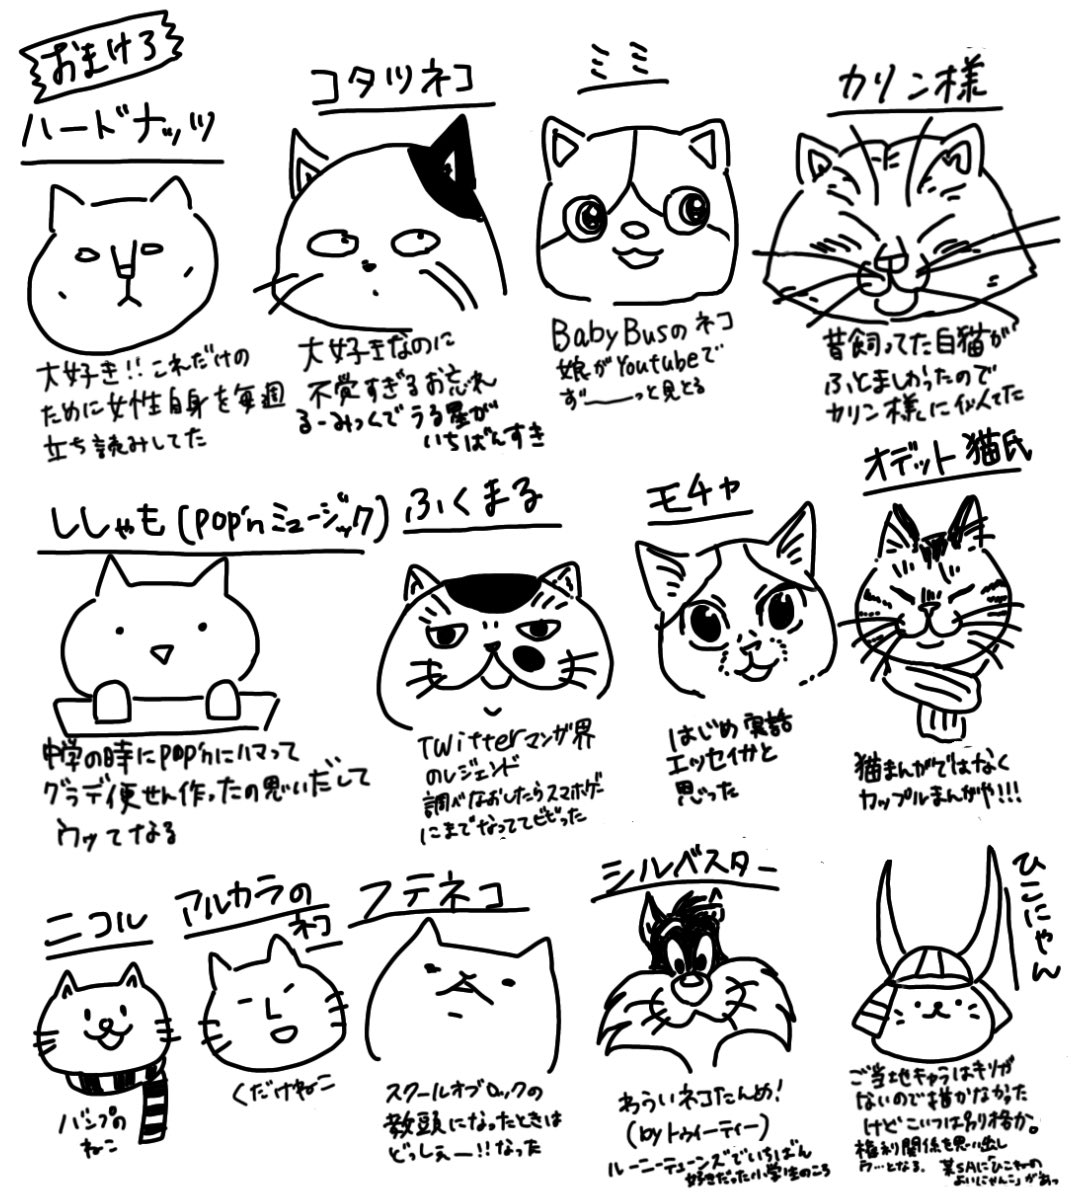 おまけろ
ハードナッツ
大好き!!これだけの
ために女性自身を毎週
立ち読みしてた
コタツネコ
大好きなのに
不覚すぎるお忘れ
るーみっくでうる星が
いちばんすき
ミミ
BabyBusのネコ
娘がYoutubeで
ずーーっと見とる
カリン様
昔飼ってた白猫が
ふとましかったので
カリン様に似てた
ししゃも(pop'nミュージック)
中学の時にpop'nにハマって
グラデ便せん作ったの思いだして
ウッてなる
ふくまる
Twitterマンガ界
のレジェンド
調べなおしたらスマホゲー
にまでなっててビビった
モチャ
はじめ実話
エッセイかと
思った
オデット猫氏
猫まんがではなく
カップルまんがや!!!
ニコル
バンプの
ねこ
アルカラの
ネコ
くだけねこ
フテネコ
スクールオブロックの
教頭になったときは
どっしぇー!!なった
シルベスター
わういネコたんめ!
(byトゥイーティー)
ルーニーテューンズでいちばん
好きだった小学生のころ
ひこにゃん
ご当地キャラはキリが
ないので描かなかった
けどこいつは別格か。
権利関係を思い出し
ウ…となる。 某SAに「ひこねの
よいにゃんこ」があっ